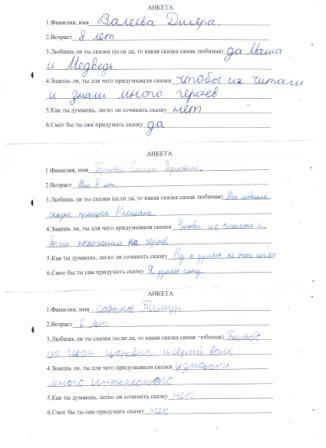 АНКЕТА
1.Фамилия, имя Валеева Дилара.
2.Возраст 8 лет
3.Любишь ли ты сказки (если да, то какая сказка самая любимая) да Маша
и Медведь.
4.Знаешь ли, ты для чего придумывали сказку чтобы их читали
и знали много героев
5.Как ты думаешь, легко ли сочинить сказку нет
6.Смог бы ты сам придумать сказку да
АНКЕТА
1.Фамилия, имя
2.Возраст Мне 8 лет.
3.Любишь ли ты сказки (если да, то какая сказка самая любимая) Моя любимая
сказка принцесса
4.Знаешь ли, ты для чего придумывали сказки Чтобы их читали и
были похожими на героев.
5.Как ты думаешь, легко ли сочинить сказку Ну я думаю не очень легко
6.Смог бы ты сам придумать сказку Я думаю смогу.
АНКЕТА
1.Фамилия, имя Тимур
2.Возраст 8 лет
3.Любишь ли ты сказки (если да, то какая сказка самая любимая)
да Иван царевич и серый волк
4.Знаешь ли, ты для чего придумывали сказки узнавали
много интересного
5.Как ты думаешь, легко ли сочинить сказку нет
6.Смог бы ты сам придумать сказку нет